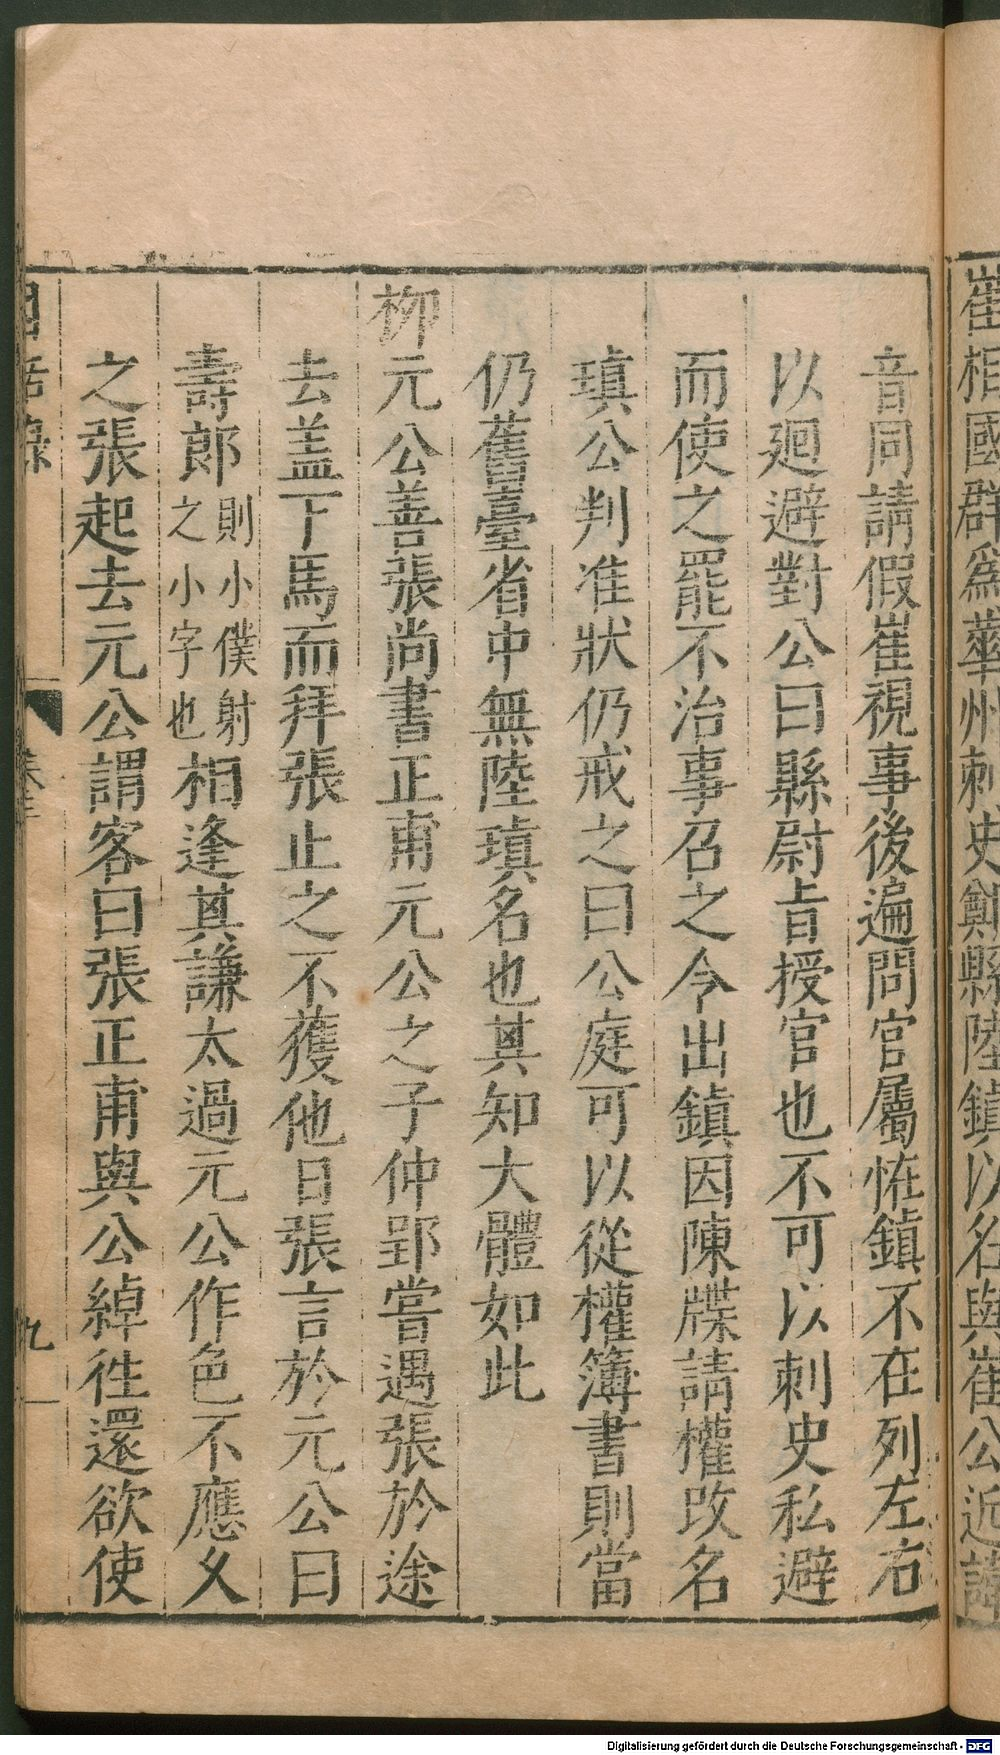 崔相國群爲華州刺史鄭縣陸鎮以名與崔公近諱
音同請假崔視事後遍問官屬恠鎮不在列左右
以廻避對公曰縣尉旨授官也不可以刺史私避
而使之罷不治事召之令出鎮因陳牒請權改名
瑱公判准狀仍戒之曰公庭可以從權簿書則當
仍舊臺省中無陸瑱名也其知大體如此
柳元公善張尚書正甫元公之子仲郢嘗遇張於途
去盖下馬而拜張止之不獲他日張言於元公曰
壽郎則小僕射之小字也相逢其謙太過元公作色不應乆
之張起去元公謂客曰張正甫與公綽徃還欲使
因話錄
卷三
九
Digitalisierung gefördert durch die Deutsche Forschungsgemeinschaft - DFG